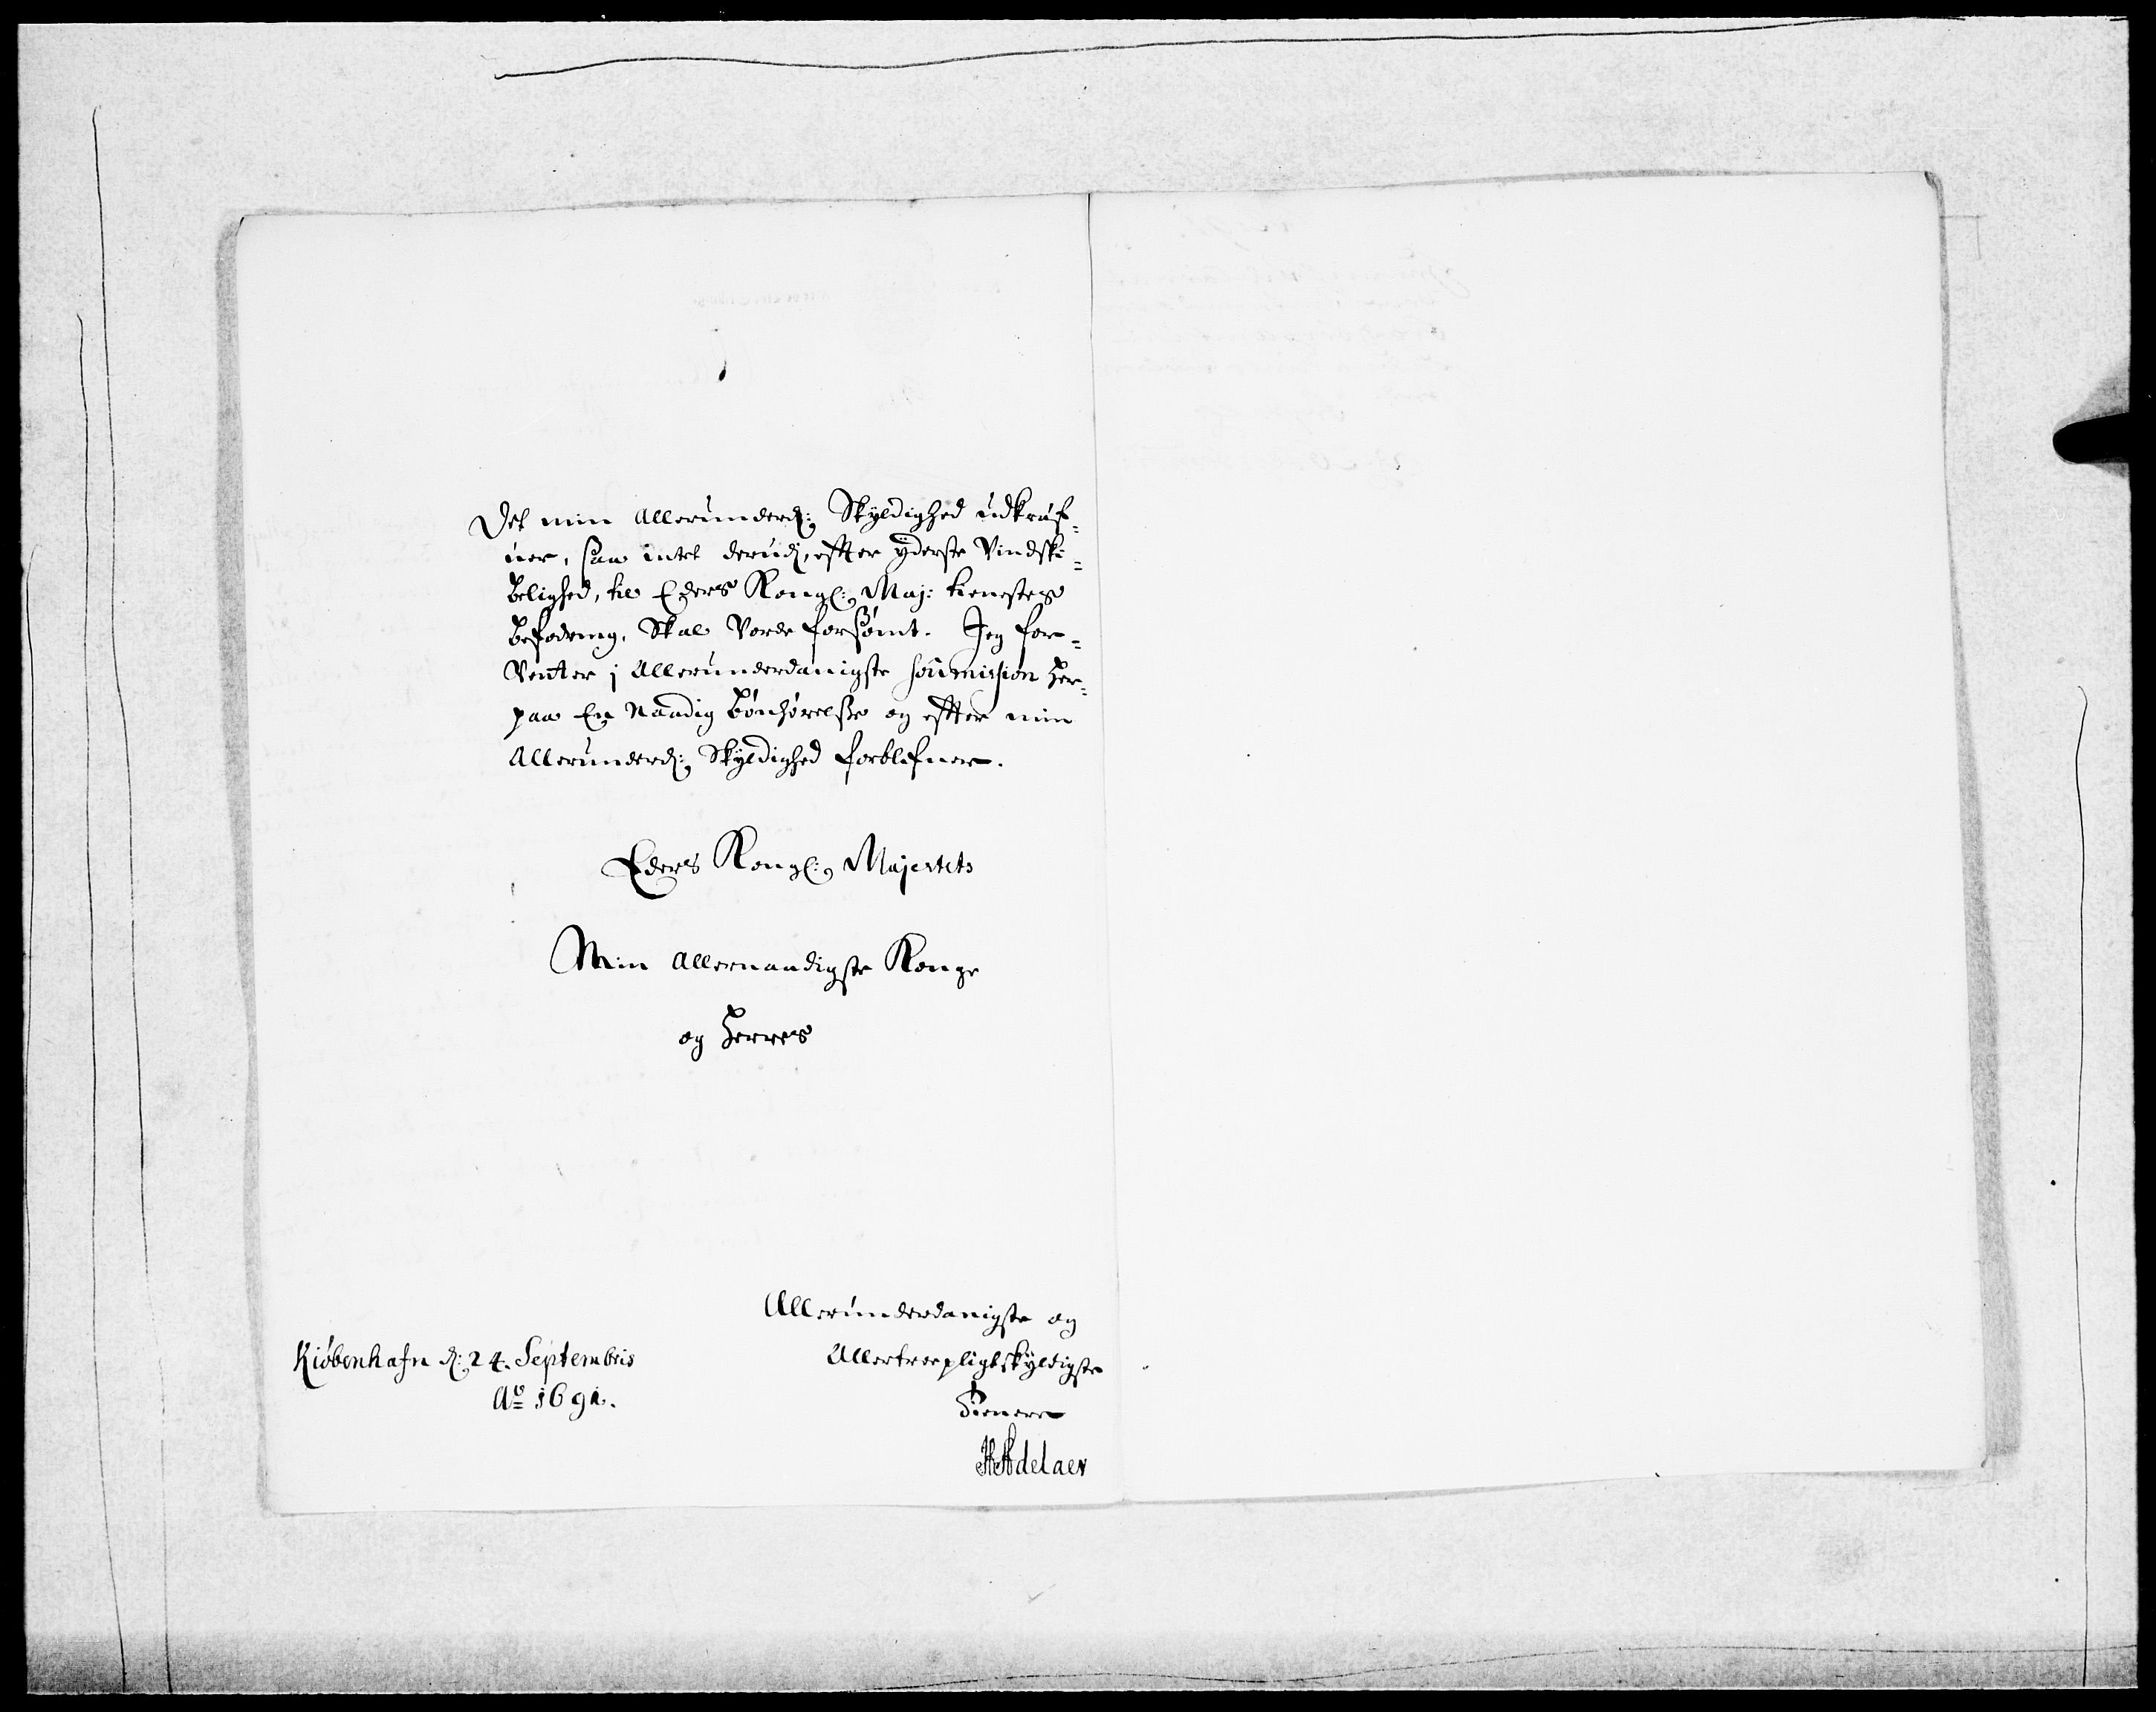 Det min allerunderd: Skyldighed udkræf-
uer, saa intet derudj, effter yderste Vindski-
belighed, til Eders Kongl: Maj: tienestes
befodring, Skal vorde forsømt. Jeg for-
venter j allerunderdanigste soumission her-
paa En Naadig bønhørelse og effter min
allerunderd: Skyldighed forblifuer.
Eders Kongl: Majestets
Min allernaadigste Konge
og Herres
Allerunderdanigste og
Allertroepligtskyldigste
Tienere
HAdelaer
Kiøbenhafn d: 24. Septembris
Ao 1691.